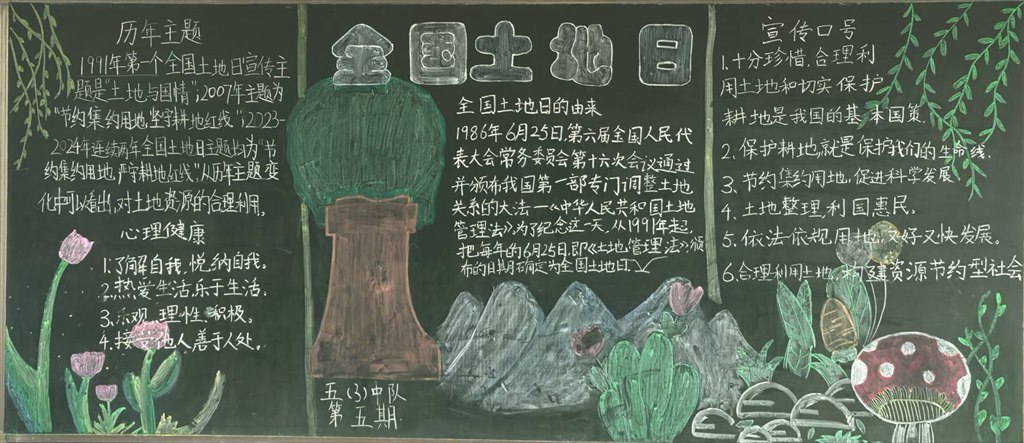 历年主题
1991年第一个全国土地日宣传主
题是"土地与国情",2007年主题为
"节约集约用地坚守耕地红线",2023-
2024年连续两年全国土地日主题均为"节
约集约用地,严守耕地红线"从历年主题变
化中可以看出,对土地资源的合理利用。
心理健康
1.了解自我,悦纳自我。
2.热爱生活,乐于生活。
3.乐观 理性 积极。
4.接受他人善于人处。
全国土地日
全国土地日的由来
1986年6月25日第六届全国人民代
表大会常务委员会第十六次会议通过
并颁布我国第一部专门调整土地
关系的大法—《中华人民共和国土地
管理法》,为了纪念这一天,从1991年起,
把每年的6月25日,即《土地管理法》颁
布的日期确定为全国土地日。
五(3)中队
第五期
宣传口号
1.十分珍惜、合理利
用土地和切实保护
耕地是我国的基本国策
2.保护耕地,就是保护我们的生命线.
3.节约集约用地,促进科学发展
4.土地整理,利国惠民.
5.依法依规用地,又好又快发展。
6.合理利用土地,构建资源节约型社会